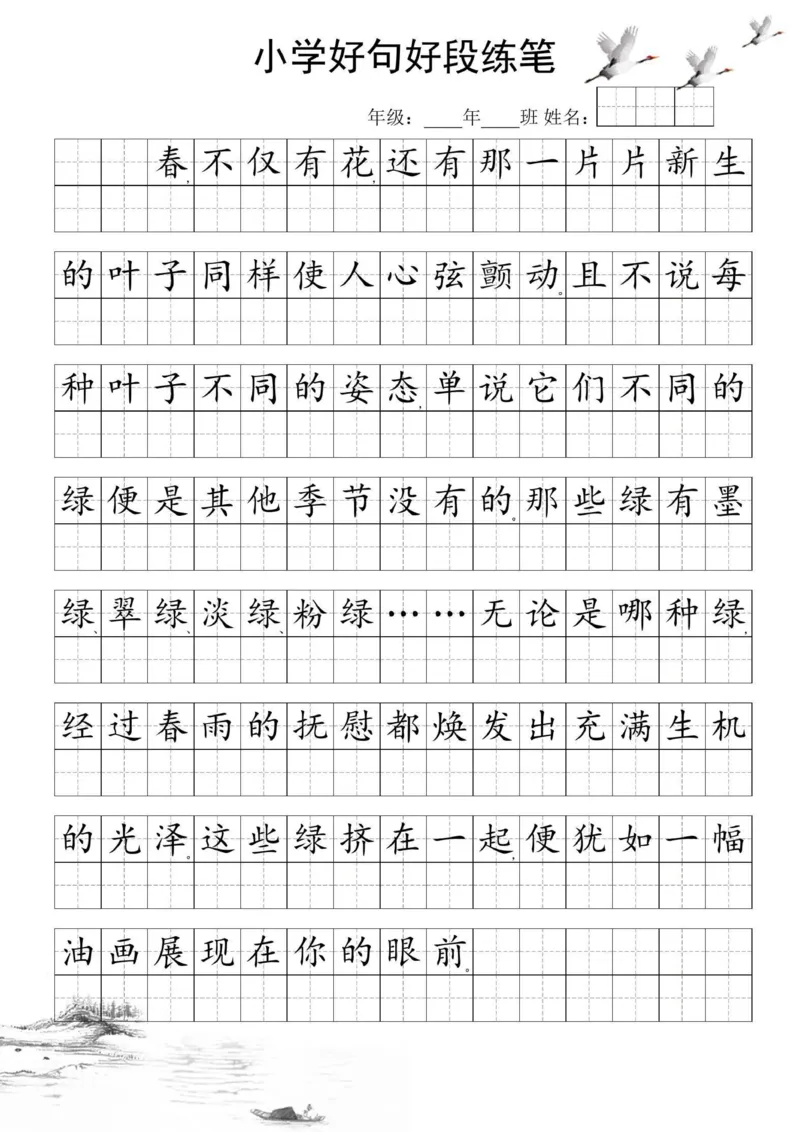 小学好句好段练笔
年级：____年____班 姓名：
春,不仅有花,还有那一片片新生
的叶子同样使人心弦颤动。且不说每
种叶子不同的姿态,单说它们不同的
绿便是其他季节没有的。那些绿有墨
绿、翠绿、淡绿、粉绿……无论是哪种绿,
经过春雨的抚慰都焕发出充满生机
的光泽。这些绿挤在一起,便犹如一幅
油画展现在你的眼前。